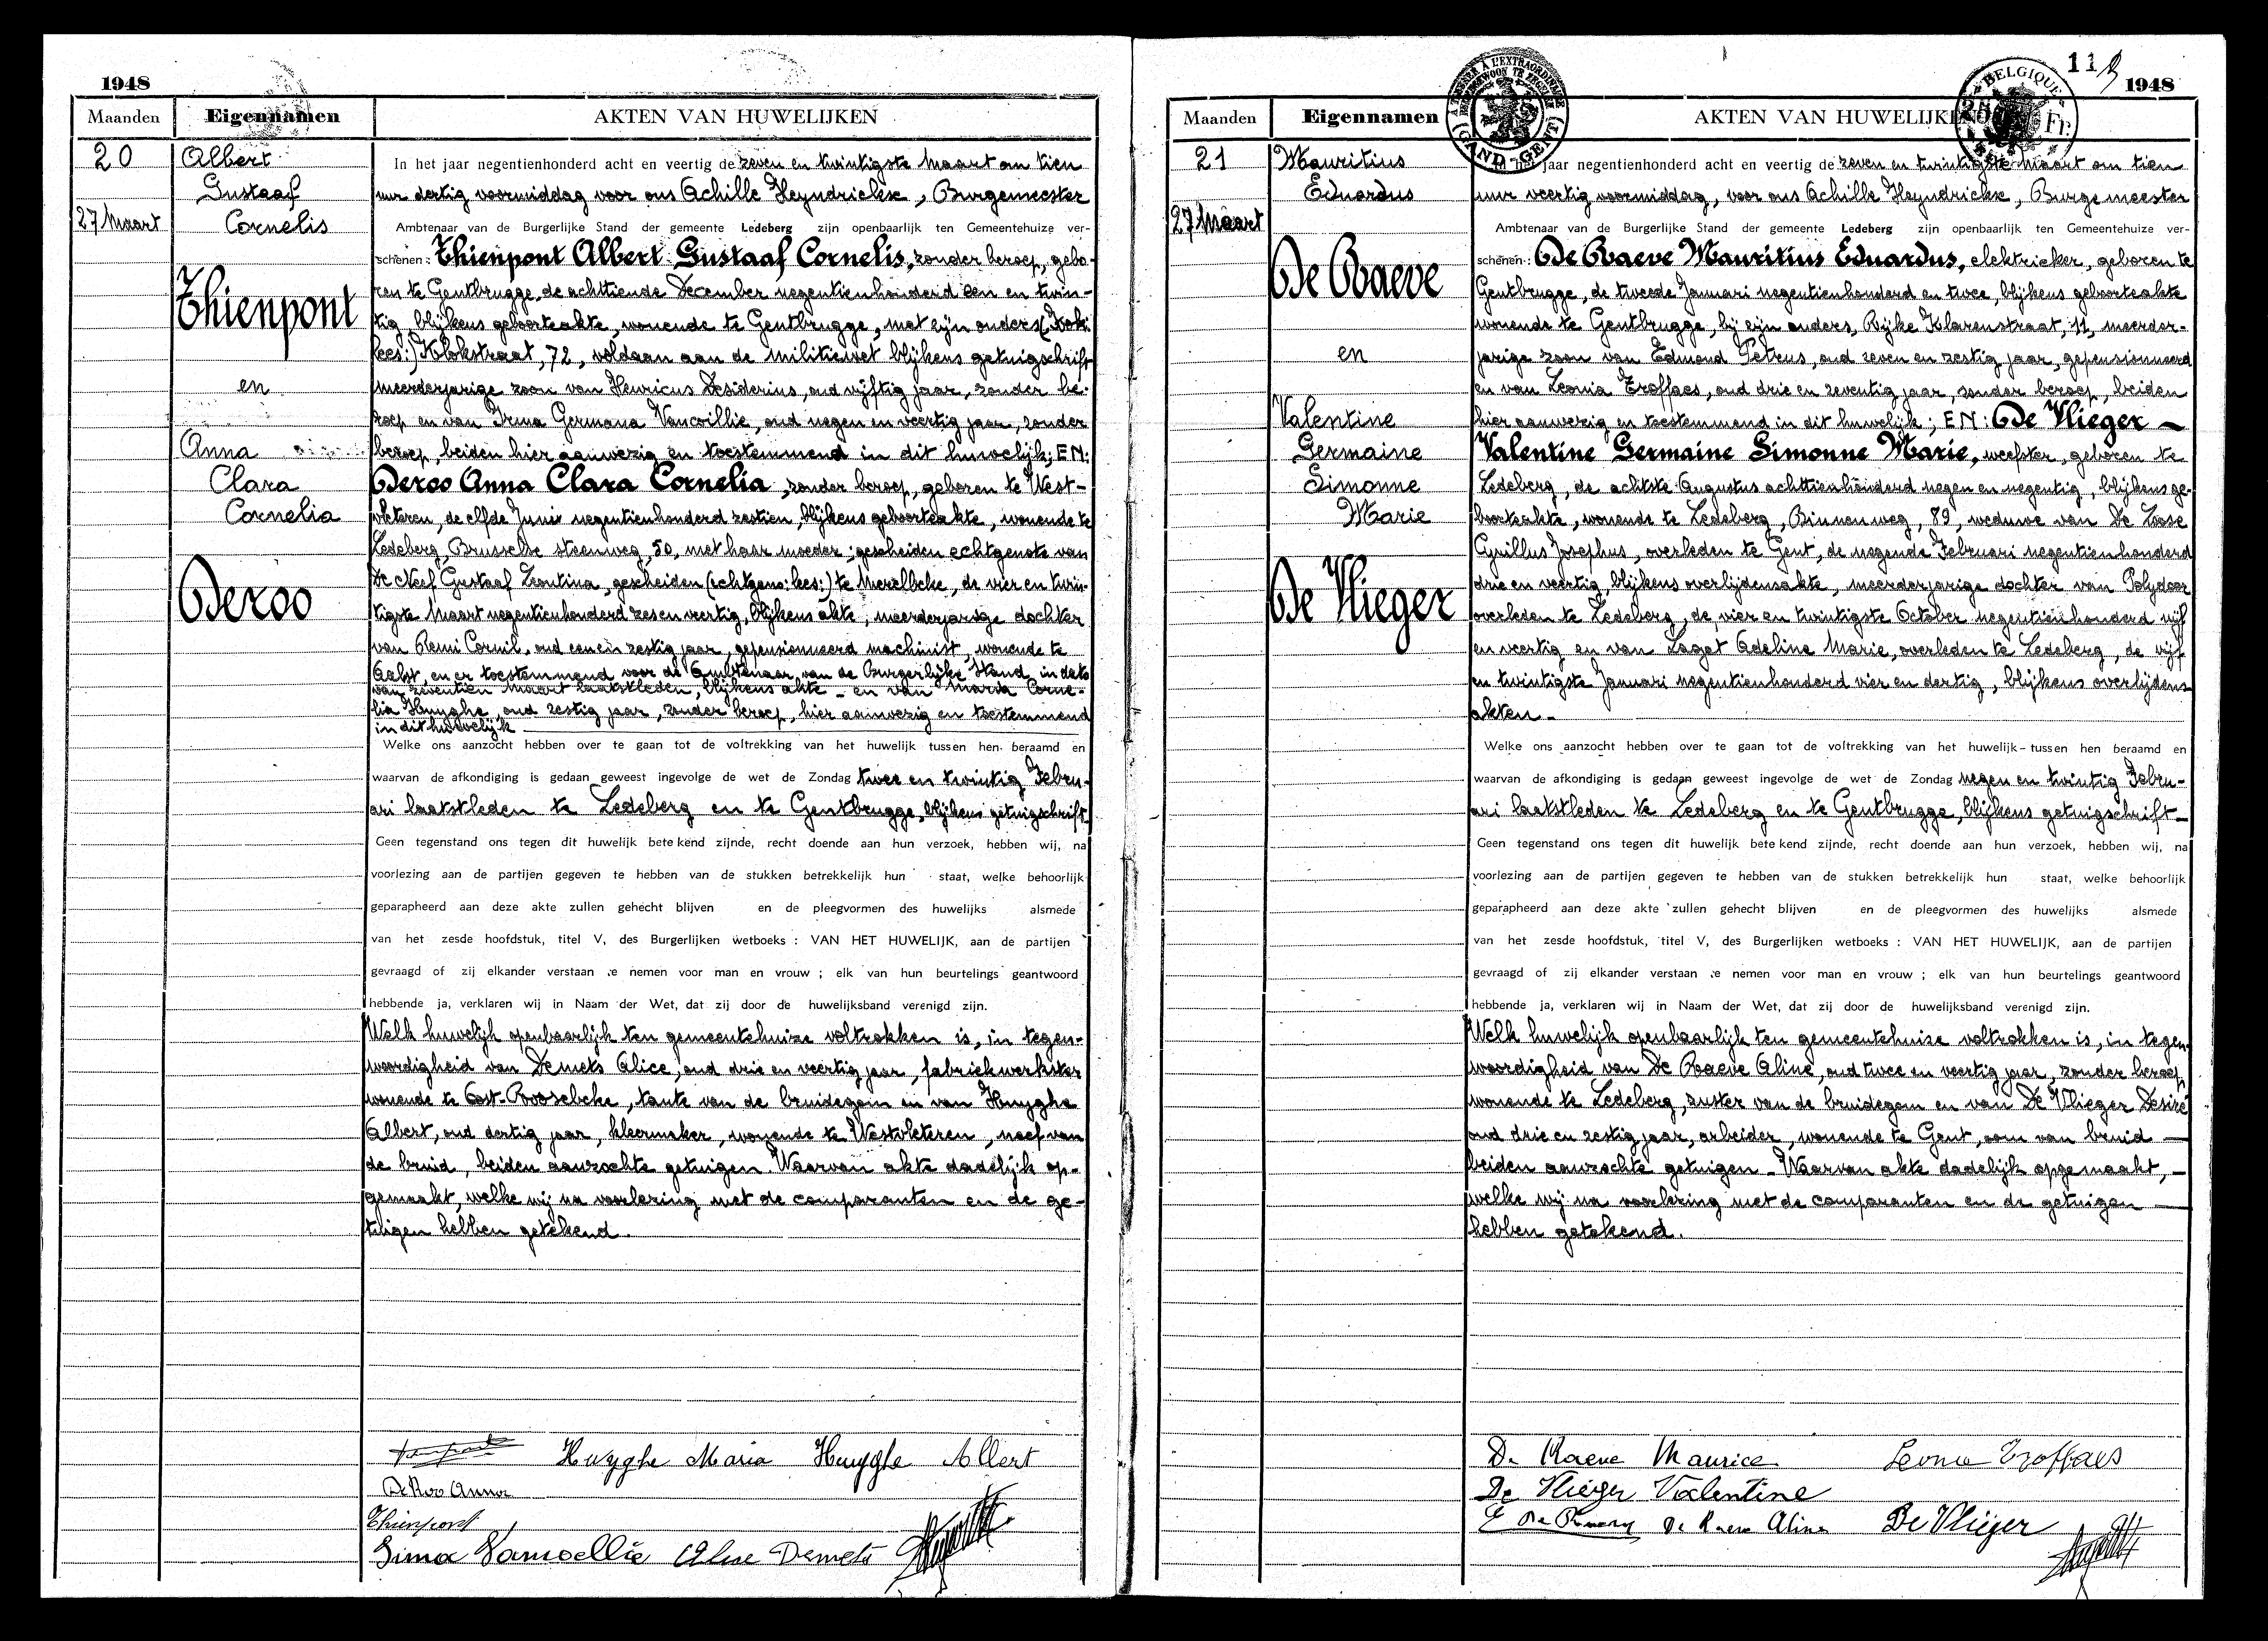 1948
Maanden Eigennamen AKTEN VAN HUWELIJKEN
20
27 Maart
Albert
Gustaaf
Cornelis
Thienpont
en
Anna
Clara
Cornelia
Deroo
In het jaar negentienhonderd acht en veertig de zeven en twintigste Maart om tien
uur dertig voormiddag voor ons Achille Heyndrickx, Burgemeester
Ambtenaar van de Burgerlijke Stand der gemeente Ledeberg zijn openbaarlijk ten Gemeentehuize ver-
schenen: Thienpont Albert Gustaaf Cornelis, zonder beroep, gebo-
ren te Gentbrugge, de achttiende December negentienhonderd een en twin-
tig, blijkens geboorteakte, wonende te Gentbrugge, met zijn ouders
lees:) Klokstraat, 72, voldaan aan de militiewet blijkens getuigschrift
meerderjarige zoon van Henricus Desiderius, oud vijftig jaar, zonder be-
roep en van Irma Germana Vancoillie, oud negen en veertig jaar, zonder
beroep, beiden hier aanwezig en toestemmend in dit huwelijk; EN:
Deroo Anna Clara Cornelia, zonder beroep, geboren te West-
vleteren, de elfde Juni negentienhonderd zestien, blijkens geboorteakte, wonende te
Ledeberg, Brusselse steenweg, 50, met haar moeder; gescheiden echtgenote van
De Neef Gustaaf Leontina, gescheiden (echtgeno: lees:) te Merelbeke, de vier en twin-
tigste Maart negentienhonderd zes en veertig, blijkens akte, meerderjarige dochter
van Remi Cornil, oud een en zestig jaar, gepensionneerd machinist, wonende te
Aalst, en er toestemmend voor de Ambtenaar van de Burgerlijke Stand, in dato
van zeventien Maart laatstleden, blijkens akte - en van Maria Corne-
lia Huyghe, oud zestig jaar, zonder beroep, hier aanwezig en toestemmend
in dit huwelijk
Welke ons aanzocht hebben over te gaan tot de voltrekking van het huwelijk tussen hen beraamd en
waarvan de afkondiging is gedaan geweest ingevolge de wet de Zondag twee en twintig Febru-
ari laatstleden te Ledeberg en te Gentbrugge, blijkens getuigschrift
Geen tegenstand ons tegen dit huwelijk betekend zijnde, recht doende aan hun verzoek, hebben wij, na
voorlezing aan de partijen gegeven te hebben van de stukken betrekkelijk hun staat, welke behoorlijk
geparapheerd aan deze akte zullen gehecht blijven en de pleegvormen des huwelijks alsmede
van het zesde hoofdstuk, titel V, des Burgerlijken wetboeks : VAN HET HUWELIJK, aan de partijen
gevraagd of zij elkander verstaan te nemen voor man en vrouw ; elk van hun beurtelings geantwoord
hebbende ja, verklaren wij in Naam der Wet, dat zij door de huwelijksband verenigd zijn.
Welk huwelijk openbaarlijk ten gemeentehuize voltrokken is, in tegen-
woordigheid van Demets Alice, oud drie en veertig jaar, fabriekwerkster
wonende te Oost-Roosebeke, tante van de bruidegom en van Huyghe
Albert, oud dertig jaar, kleermaker, wonende te Westvleteren, neef van
de bruid, beiden aanzochte getuigen. Waarvan akte dadelijk op-
gemaakt, welke wij na voorlezing met de comparanten en de ge-
tuigen hebben getekend.
Huyghe Maria Huyghe Albert
De Roo Anna
Thienpont
Irma Vancoellie Alice Demets
113 1948
A TIMBRER A L'EXTRAORDINAIRE
(GAND-GENT)
BELGIQUE
25 Fr.
Maanden Eigennamen AKTEN VAN HUWELIJKEN
21
27 Maart
Mauritius
Eduardus
De Raeve
en
Valentine
Germaine
Simonne
Marie
De Vlieger
In het jaar negentienhonderd acht en veertig de zeven en twintigste Maart om tien
uur veertig voormiddag, voor ons Achille Heyndrickx, Burgemeester
Ambtenaar van de Burgerlijke Stand der gemeente Ledeberg zijn openbaarlijk ten Gemeentehuize ver-
schenen: De Raeve Mauritius Eduardus, elektrieker, geboren te
Gentbrugge, de tweede Januari negentienhonderd en twee, blijkens geboorteakte
wonende te Gentbrugge, bij zijn ouders, Rijke Klarenstraat, 11, meerder-
jarige zoon van Edmond Petrus, oud zeven en zestig jaar, gepensionneerd
en van Leonia Troffaes, oud drie en zeventig jaar, zonder beroep, beiden
hier aanwezig en toestemmend in dit huwelijk; EN: De Vlieger
Valentine Germaine Simonne Marie, weefster, geboren te
Ledeberg, de achtste Augustus achttienhonderd negen en negentig, blijkens ge-
boorteakte, wonende te Ledeberg, Binnenweg, 89, weduwe van De Loose
Cyrillus Josephus, overleden te Gent, de negende Februari negentienhonderd
drie en veertig, blijkens overlijdensakte, meerderjarige dochter van Polydoor
overleden te Ledeberg, de vier en twintigste October negentienhonderd vijf
en veertig en van Laget Adeline Marie, overleden te Ledeberg, de vijf
en twintigste Januari negentienhonderd vier en dertig, blijkens overlijdens
akten.
Welke ons aanzocht hebben over te gaan tot de voltrekking van het huwelijk tussen hen beraamd en
waarvan de afkondiging is gedaan geweest ingevolge de wet de Zondag negen en twintig Febru-
ari laatstleden te Ledeberg en te Gentbrugge, blijkens getuigschrift
Geen tegenstand ons tegen dit huwelijk betekend zijnde, recht doende aan hun verzoek, hebben wij, na
voorlezing aan de partijen gegeven te hebben van de stukken betrekkelijk hun staat, welke behoorlijk
geparapheerd aan deze akte zullen gehecht blijven en de pleegvormen des huwelijks alsmede
van het zesde hoofdstuk, titel V, des Burgerlijken wetboeks : VAN HET HUWELIJK, aan de partijen
gevraagd of zij elkander verstaan te nemen voor man en vrouw ; elk van hun beurtelings geantwoord
hebbende ja, verklaren wij in Naam der Wet, dat zij door de huwelijksband verenigd zijn.
Welk huwelijk openbaarlijk ten gemeentehuize voltrokken is, in tegen-
woordigheid van De Raeve Aline, oud twee en veertig jaar, zonder beroep
wonende te Ledeberg, zuster van de bruidegom en van De Vlieger Desiré
oud drie en zestig jaar, arbeider, wonende te Gent, oom van bruid
beiden aanzochte getuigen - Waarvan akte dadelijk opgemaakt,
welke wij na voorlezing met de comparanten en de getuigen
hebben getekend.
De Raeve Maurice Leonie Troffaes
De Vlieger Valentine
De Raeve Aline De Vlieger